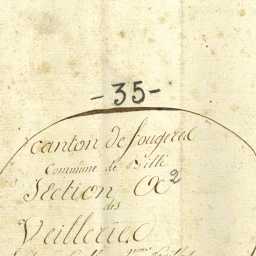 -35-
canton de fougerel
Commune de Billé
Section O 2
des
Veilleries